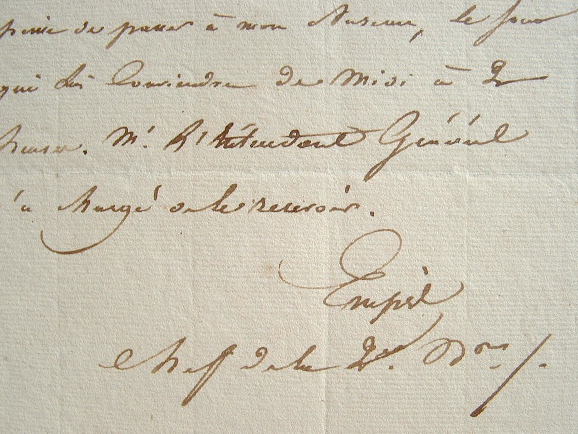 peine de passer à mon Bureau, le jour
qui lui Conviendra de Midi à 2
heures. Mr. l'Intendant Général
a chargé de le recevoir.
Empis
chef de la 2e. Don